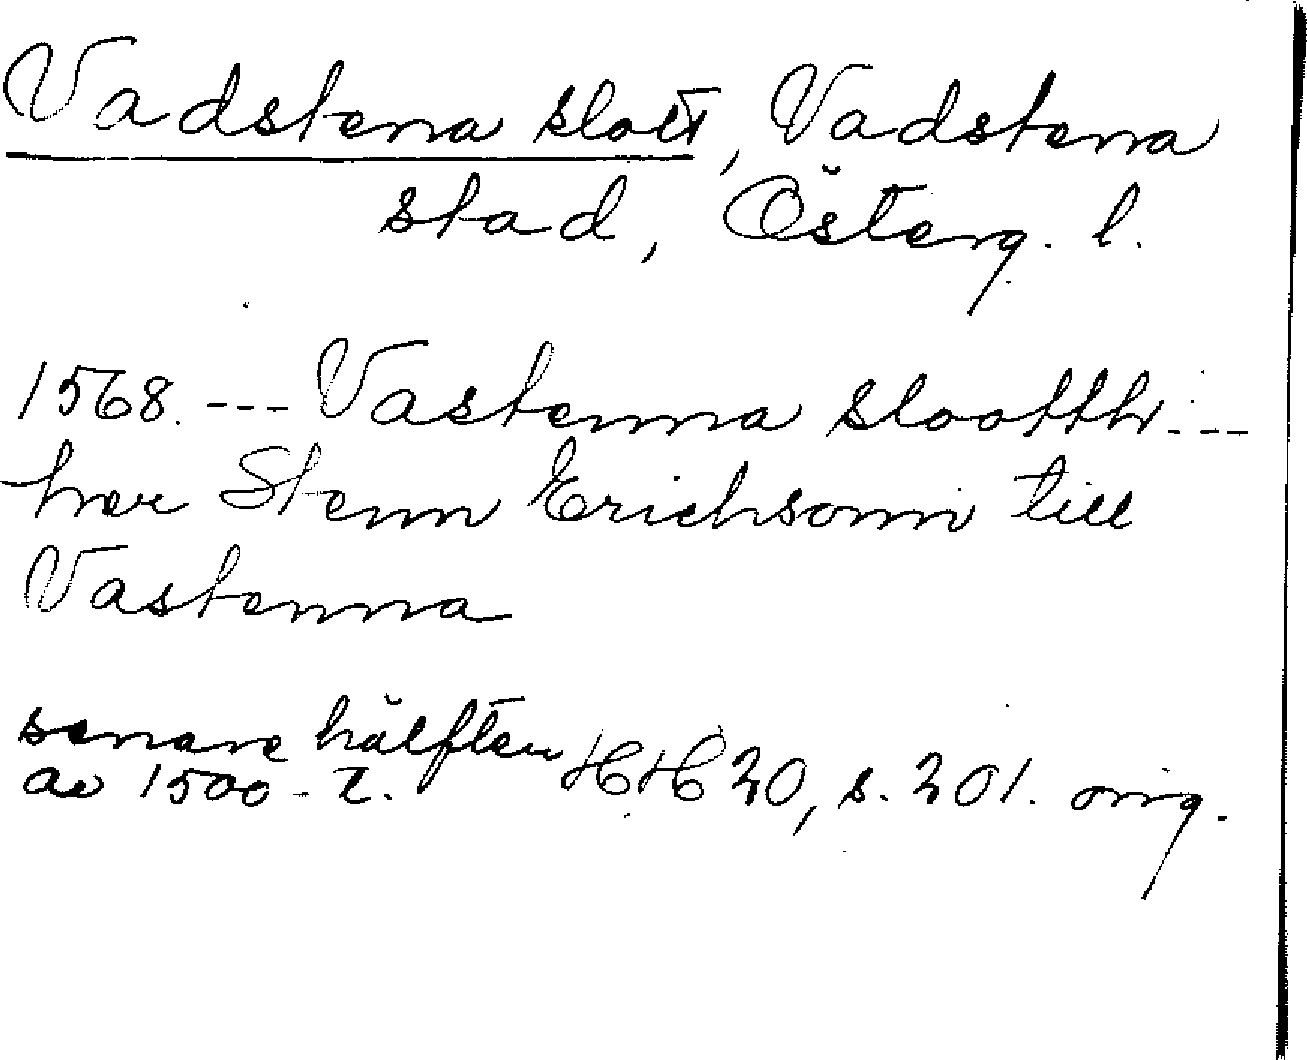 Vadstena slott, Vadstena
stad, Österg. l.
1568. --- Vastenna slootth ---
her Stenn Erichsonn till
Vastenna
senare hälften
av 1500-t. HH 20, s. 201. orig.